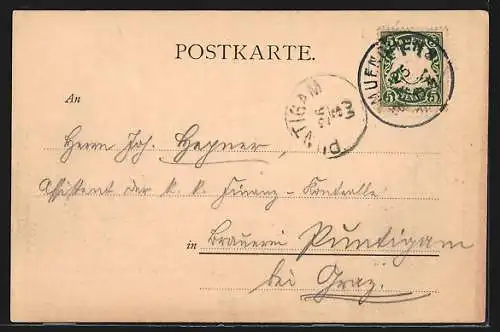 POSTKARTE.
MUEN
PUNTIGAM
An
Herrn Joh. Hepner,
Assistent der k. k. Finanz-Kontrolle
in Brauerei Puntigam
bei Graz.